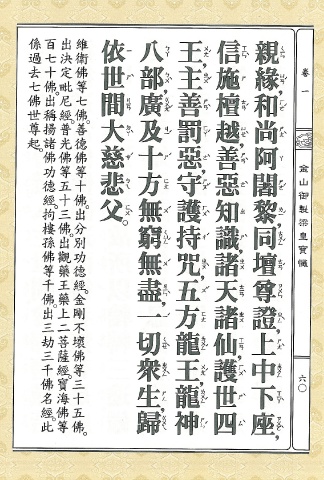 卷一
金山御製梁皇寶懺
六〇
親緣和尚阿闍黎同壇尊證上中下座，
信施檀越善惡知識諸天諸仙護世四
王主善罰惡守護持咒五方龍王龍神
八部廣及十方無窮無盡一切眾生歸
依世間大慈悲父。
維衛佛等七佛。善德佛等十佛。出分別功德經。金剛不壞佛等三十五佛。
出決定毗尼經。普光佛等五十三佛。出觀藥王藥上二菩薩經。寶海佛等
百七十佛。出稱揚諸佛功德經。拘樓孫佛等千佛。出三劫三千佛名經。此
係過去七佛世尊起。